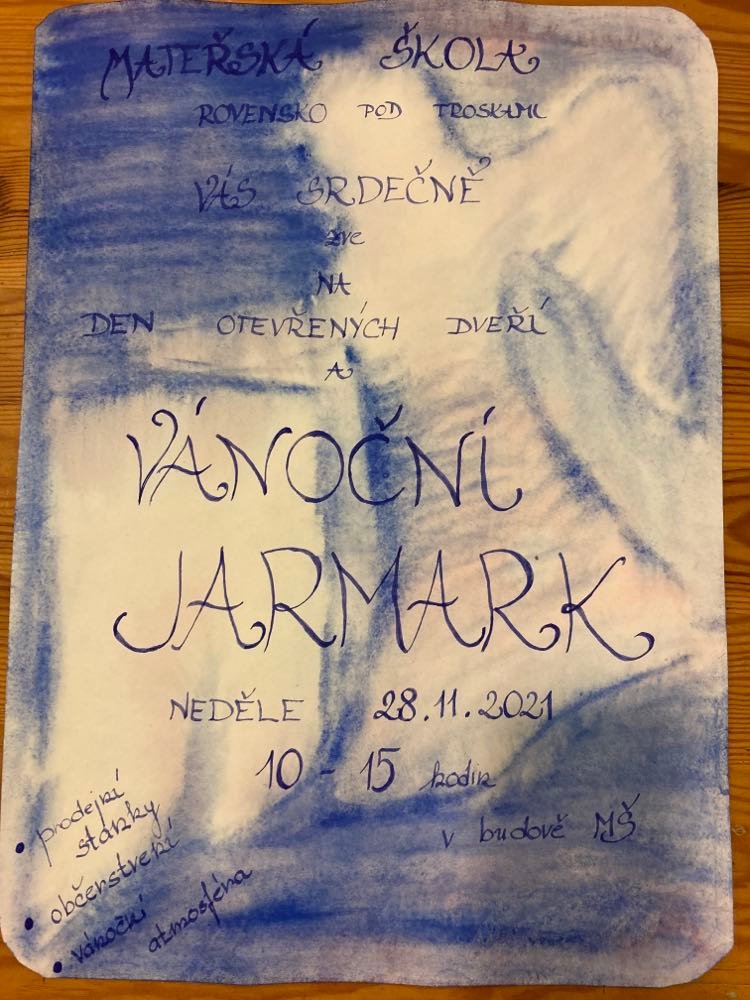 MATEŘSKÁ ŠKOLA
ROVENSKO POD TROSKAMI
VÁS SRDEČNĚ
zve
NA
DEN OTEVŘENÝCH DVEŘÍ
A
VÁNOČNÍ
JARMARK
NEDĚLE 28.11.2021
10 - 15 hodin
v budově MŠ
• prodejní
stánky
• občerstvení
• vánoční
atmosféra